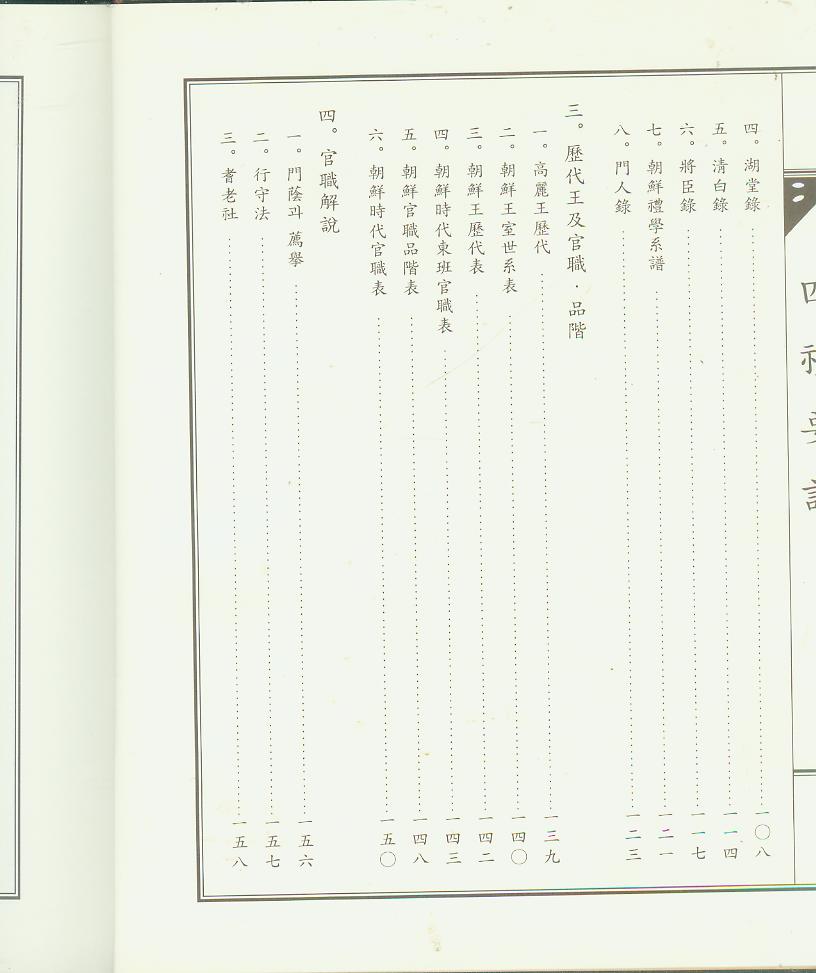 四。湖堂錄 一〇八
五。清白錄 一一四
六。將臣錄 一一七
七。朝鮮禮學系譜 一二一
八。門人錄 一二三
三。歷代王及官職·品階
一。高麗王歷代 一三九
二。朝鮮王室世系表 一四〇
三。朝鮮王歷代表 一四二
四。朝鮮時代東班官職表 一四三
五。朝鮮官職品階表 一四八
六。朝鮮時代官職表 一五〇
四。官職解說
一。門蔭과 薦擧 一五六
二。行守法 一五七
三。耆老社 一五八